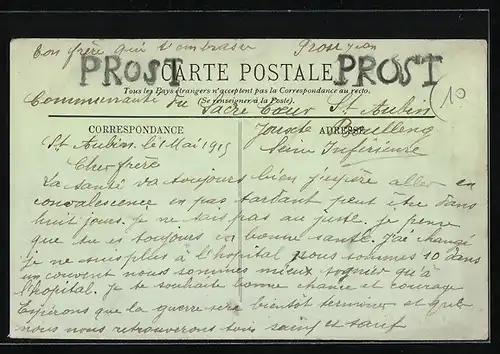 Ton frère qui t'embrasse
PROST CARTE POSTALE PROST
Tous les Pays étrangers n'acceptent pas la Correspondance au recto.
(Se renseigner à la Poste).
10
Communauté du Sacré Cœur St Aubin
CORRESPONDANCE
ADRESSE
Seine Inférieure
St Aubin le 1 Mai 1915
Cher frère
La santé va toujours bien j'espère aller en
convalescence en pas tardant peut être dans
huit jours. je ne sais pas au juste. je pense
que tu es toujours en bonne santé. J'ai changé
je ne suis plus à l'hopital nous sommes 10 dans
un couvent nous sommes mieux soigner qu'à
l'hopital. je te souhaite bonne chance et courage
Espérons que la guerre sera bientot terminer et que
nous nous retrouverons tous sains et sauf